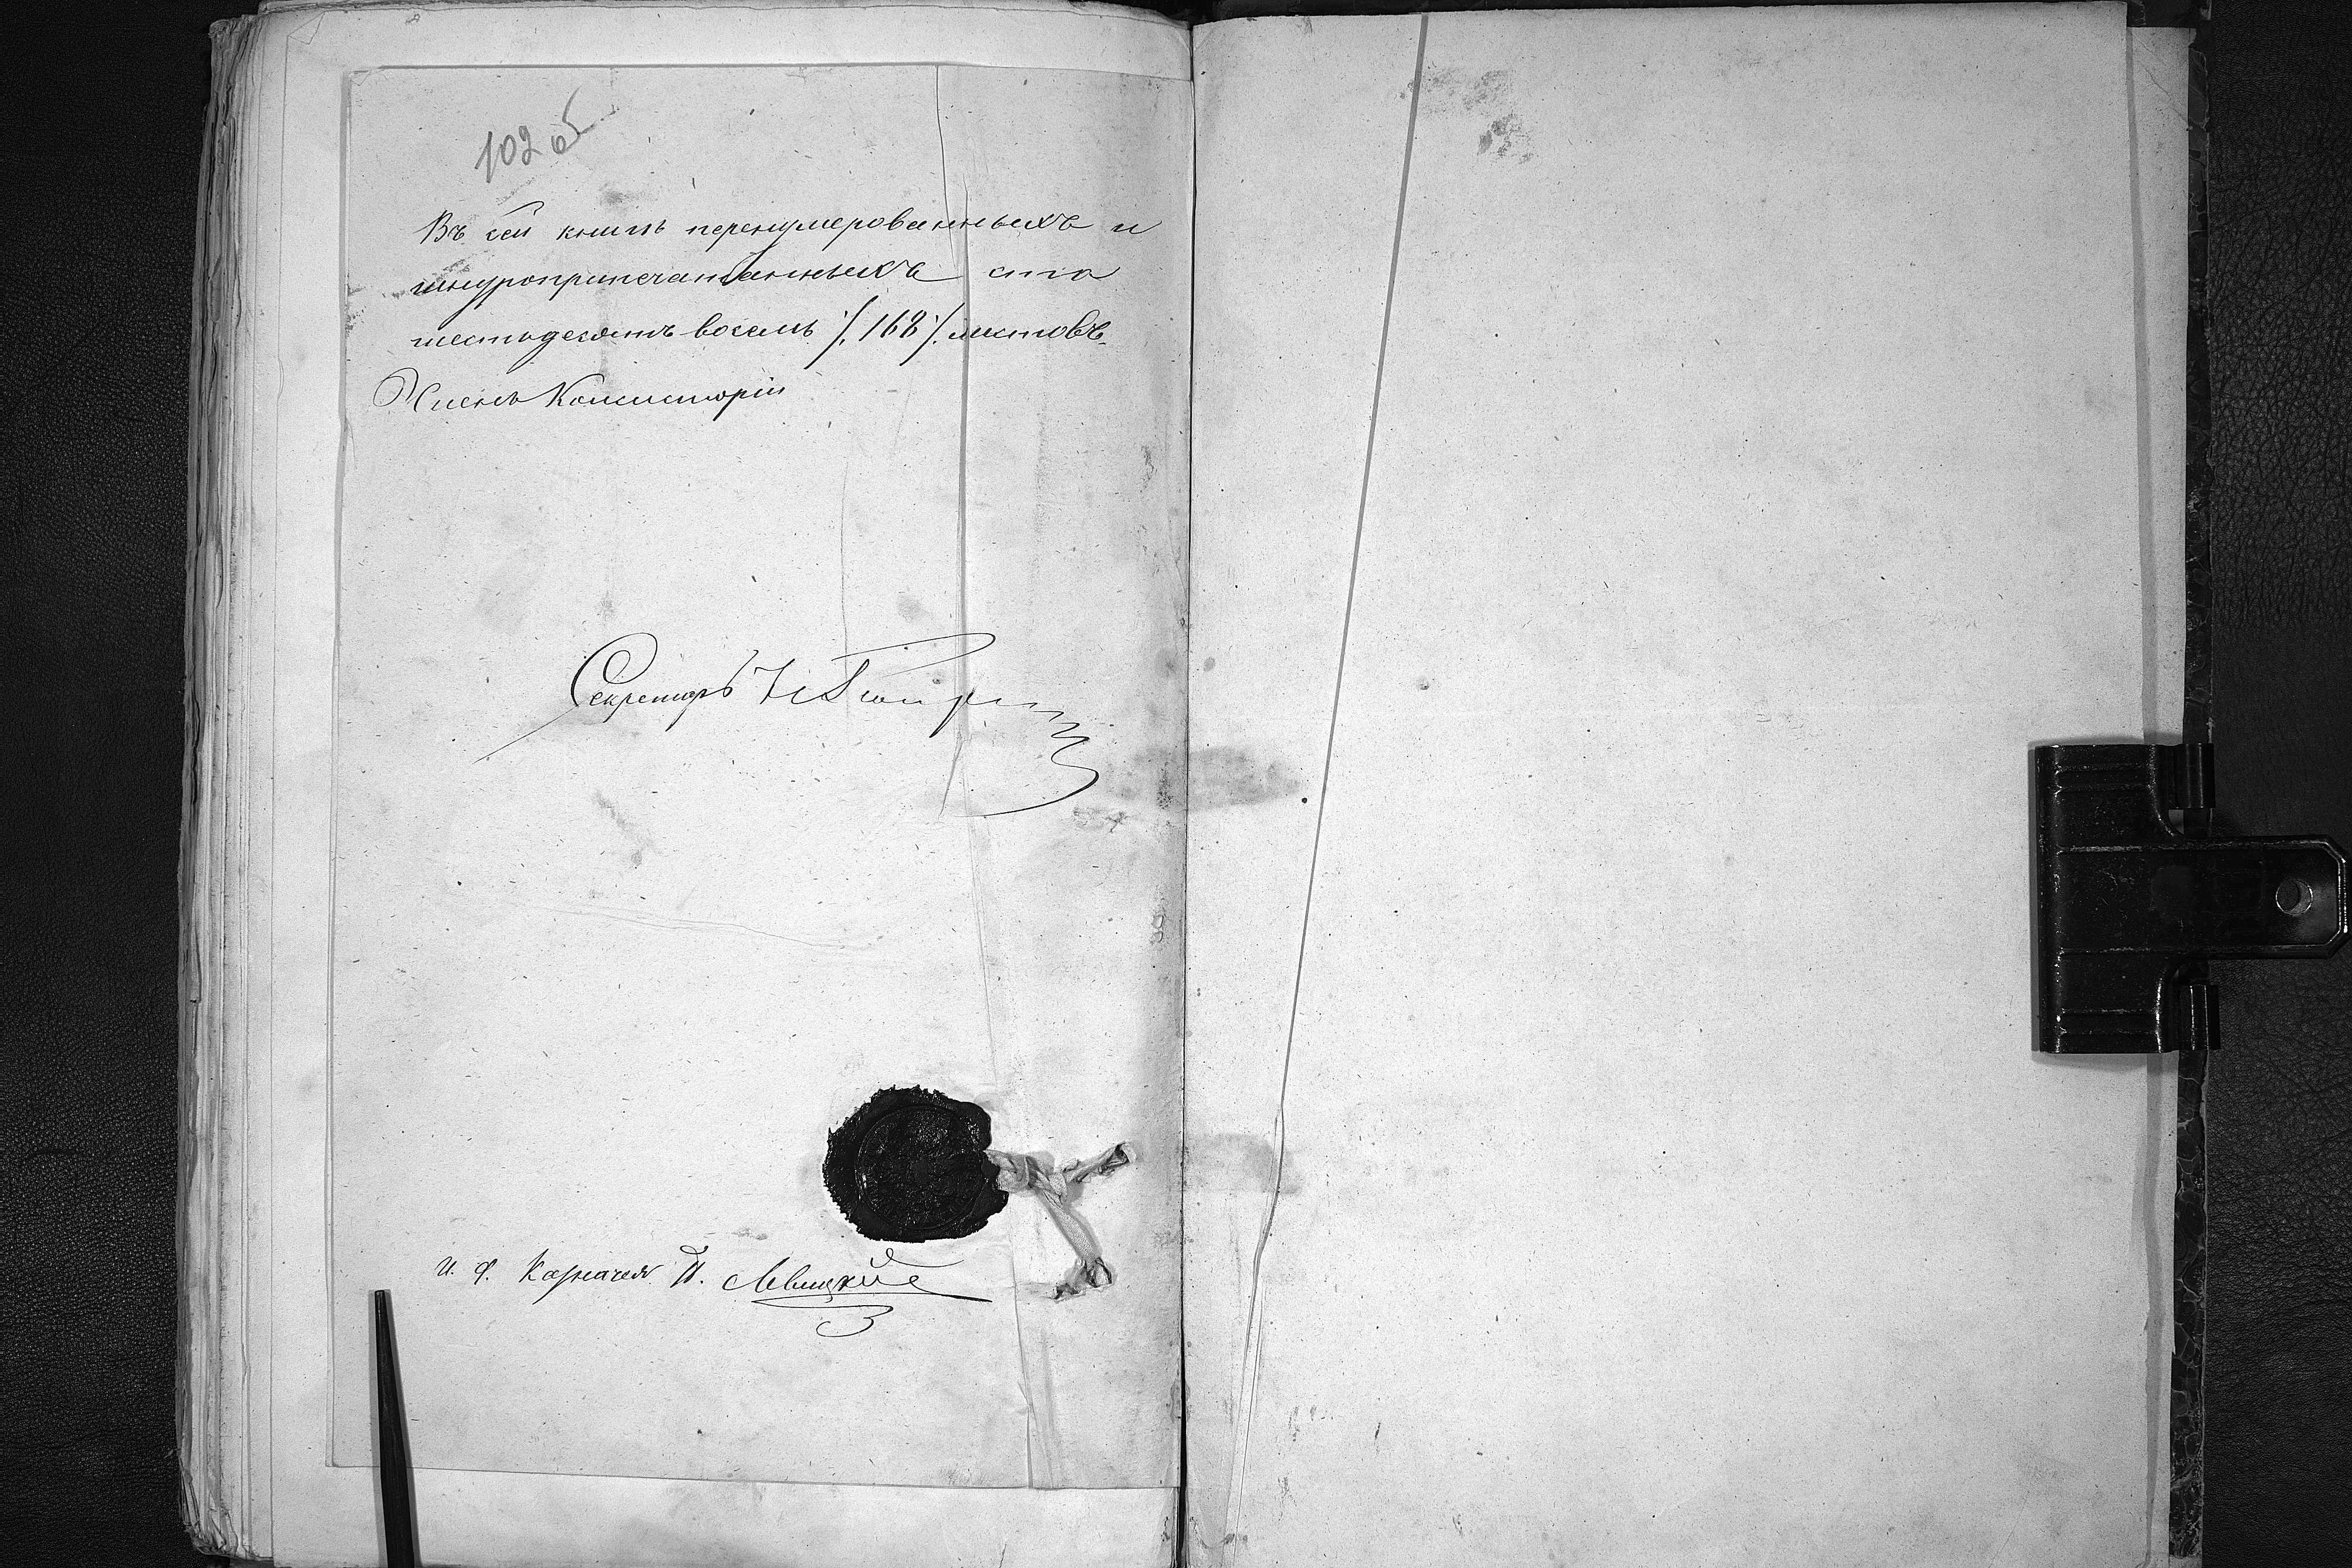 102 об
Въ сей книгѣ перенумерованныхъ и
шнуроприпечатанныхъ сто
шестьдесятъ восемь /.168/. листовъ.
Членъ Консисторіи
Секретарь
И. д. Казначея П. Левицкій